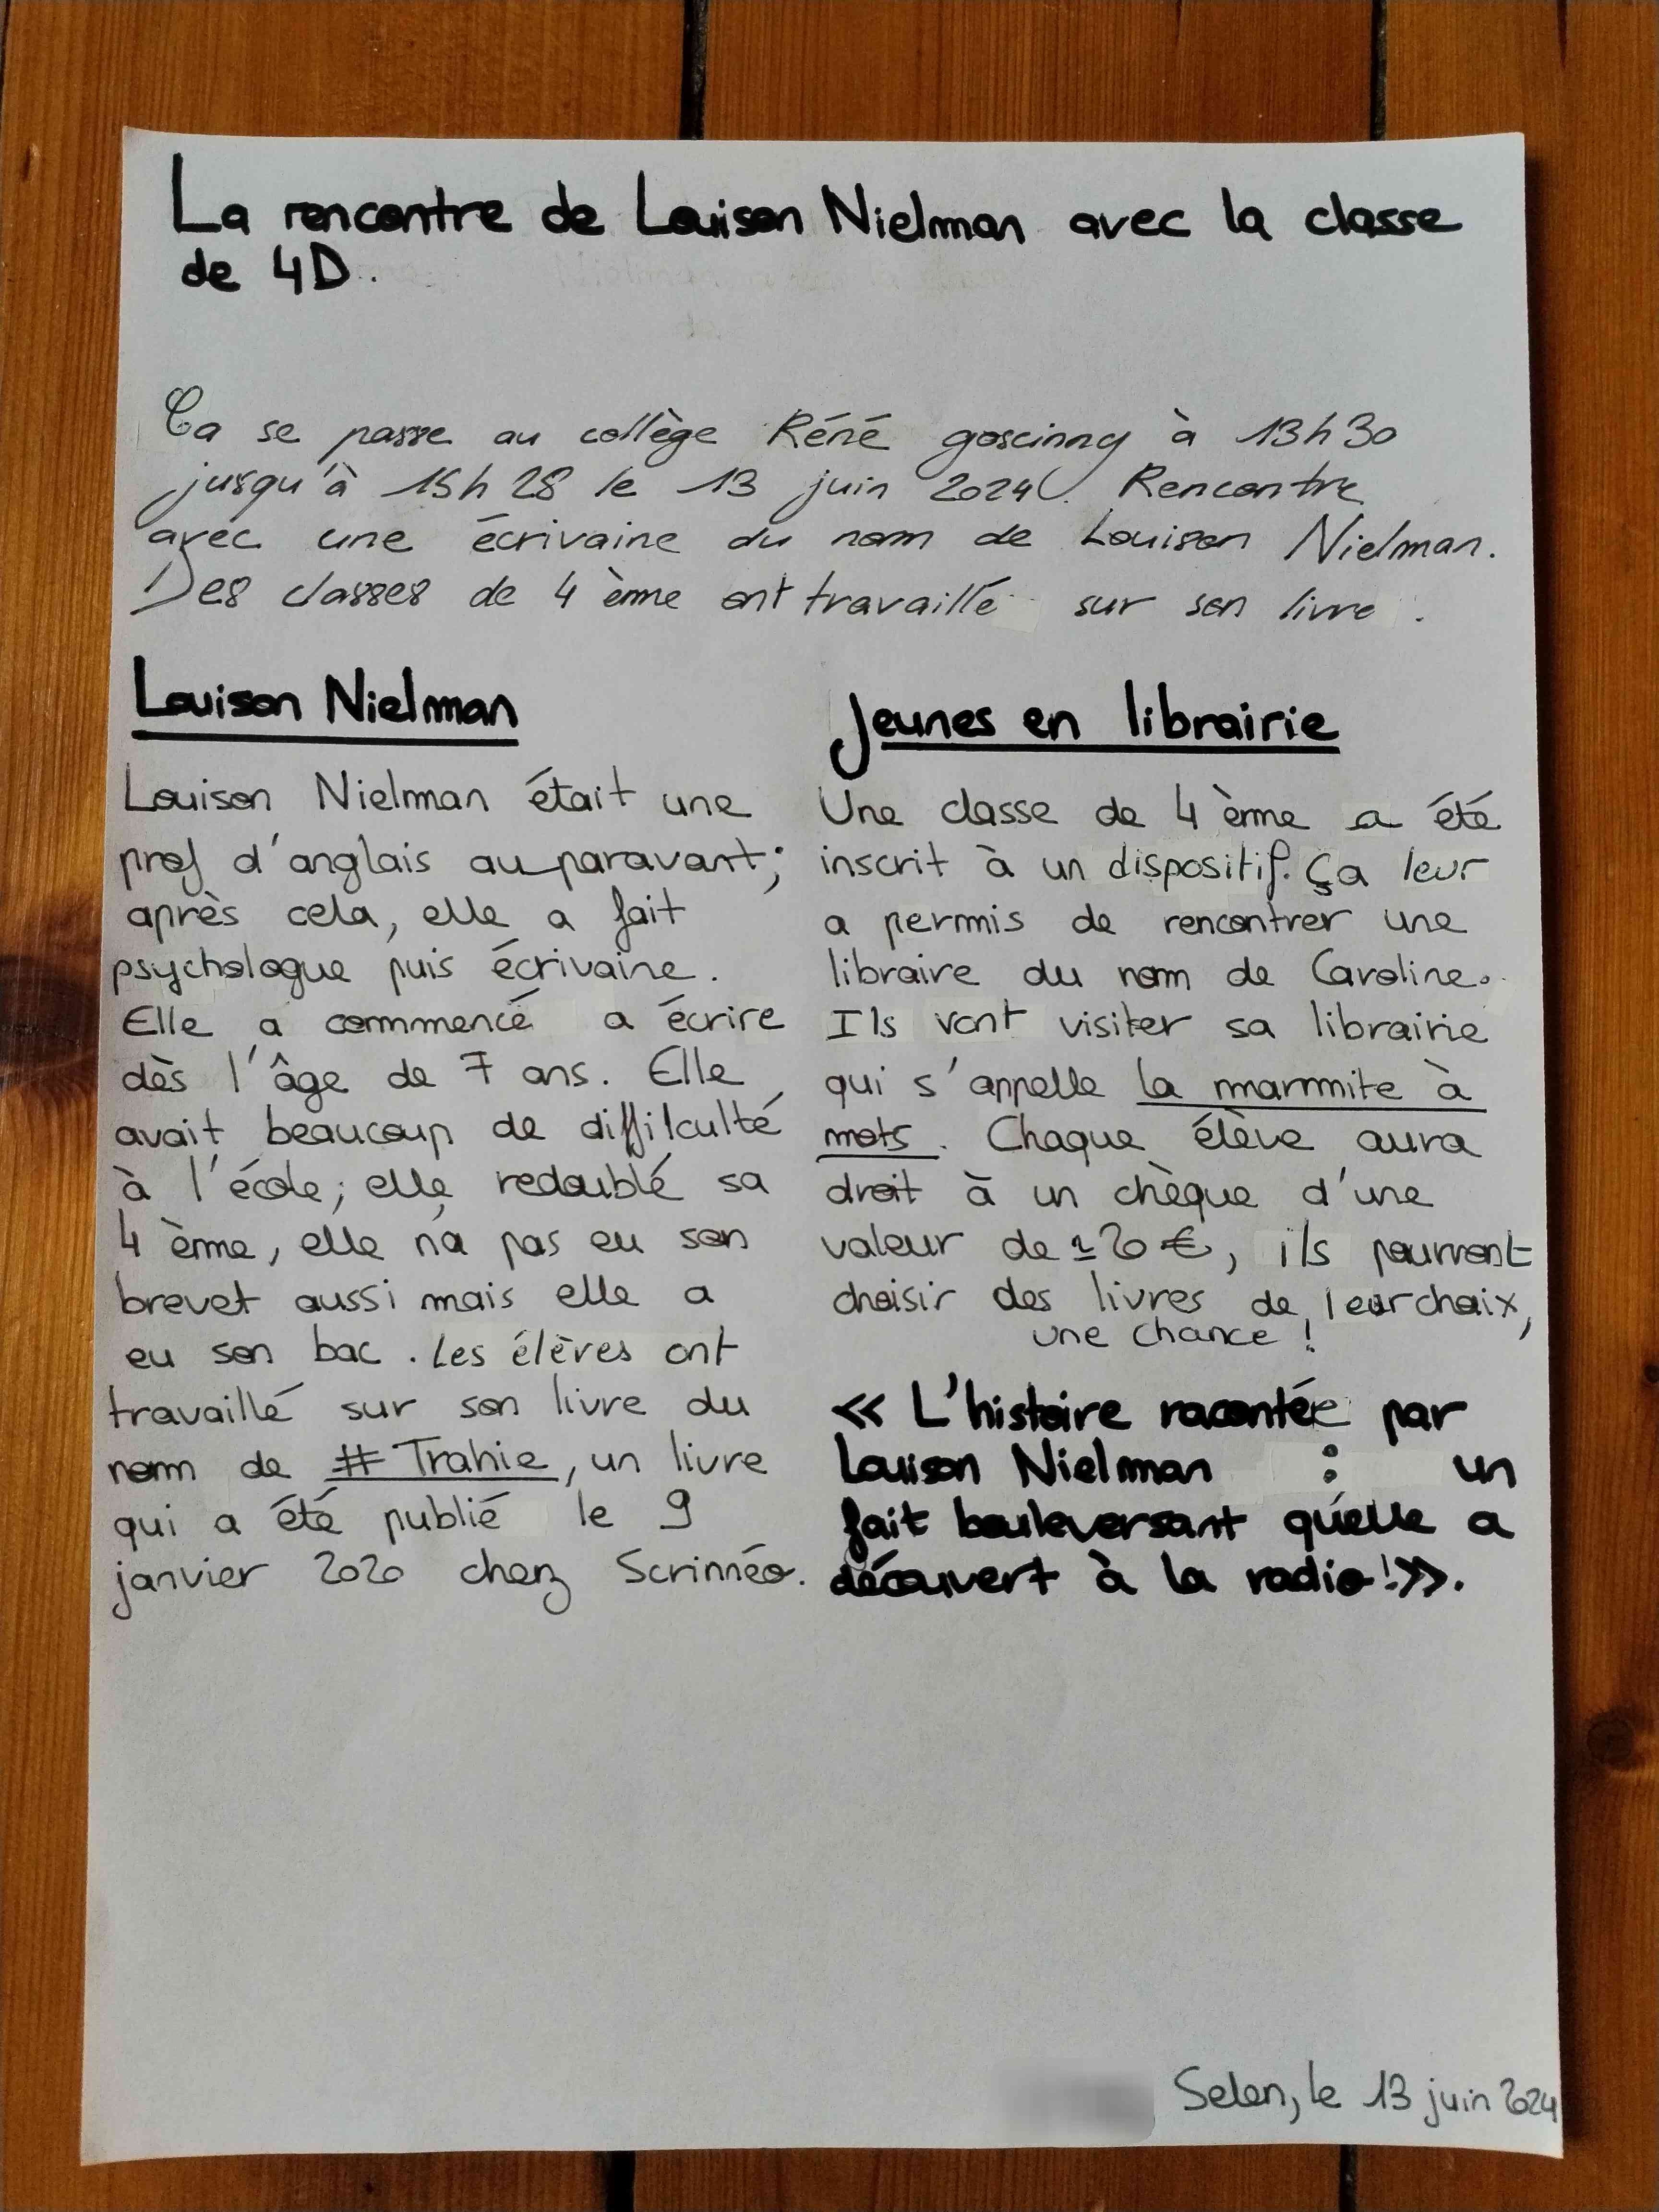 La rencontre de Louison Nielman avec la classe
de 4D.
Ca se passe au collège Réné goscinny à 13h30
jusqu'à 15h28 le 13 juin 2024. Rencontre
avec une écrivaine du nom de Louison Nielman.
Des classes de 4 ème ont travaillé sur son livre.
Louison Nielman
Louison Nielman était une
prof d'anglais auparavant;
après cela, elle a fait
psychologue puis écrivaine.
Elle a commencé a écrire
dès l'âge de 7 ans. Elle
avait beaucoup de diffilculté
à l'école; elle, redoublé sa
4 ème, elle n'a pas eu son
brevet aussi mais elle a
eu son bac. Les élèves ont
travaillé sur son livre du
nom de # Trahie, un livre
qui a été publié le 9
janvier 2020 chez Scrinéo.
Jeunes en librairie
Une classe de 4 ème a été
inscrit à un dispositif. Ça leur
a permis de rencontrer une
libraire du nom de Caroline.
Ils vont visiter sa librairie
qui s'appelle la marmite à
mots. Chaque élève aura
droit à un chèque d'une
valeur de 20 €, ils pourront
choisir des livres de leur choix,
une chance !
« L'histoire racontée par
Louison Nielman : un
fait bouleversant qu'elle a
découvert à la radio!».
Selen, le 13 juin 2024